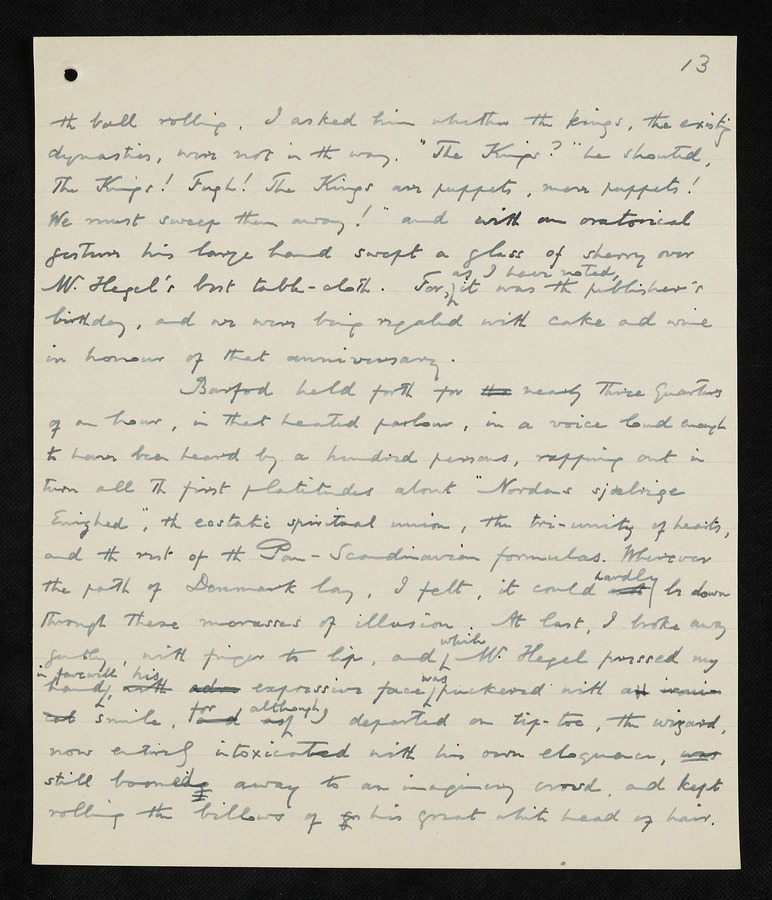 13
th ball rolling. I asked him whether the kings, the existing
dynasties, were not in th way. "The Kings?" he shouted,
The Kings! Fugh! The Kings are puppets, mere puppets!
We must sweep them away!" and with an oratorical
gesture his large hand swept a glass of sherry over
Mr. Hegel's best table-cloth. For, as I have noted, it was th publisher's
birthday, and we were being regaled with cake and wine
in honour of that anniversary.
Barfod held forth for the nearly three quarters
of an hour, in that heated parlour, in a voice loud enough
to have been heard by a hundred persons, rapping out in
turn all th first platitudes about "Nordens sjælige
Enighed", th ecstatic spiritual union, the tri-unity of hearts,
and th rest of th Pan-Scandinavian formulas. Wherever
the path of Denmark lay, I felt, it could not hardly be down
through these morasses of illusion. At last, I broke away
gently, with finger to lip, and while Mr. Hegel pressed my
hand, in farewell, with his expressive face was puckered with an
smile, and for although I departed on tip-toe, the wizard,
now entirely intoxicated with his own eloquence, was
still boomed away to an imaginary crowd, and kept
rolling the billows of his great white head of hair.